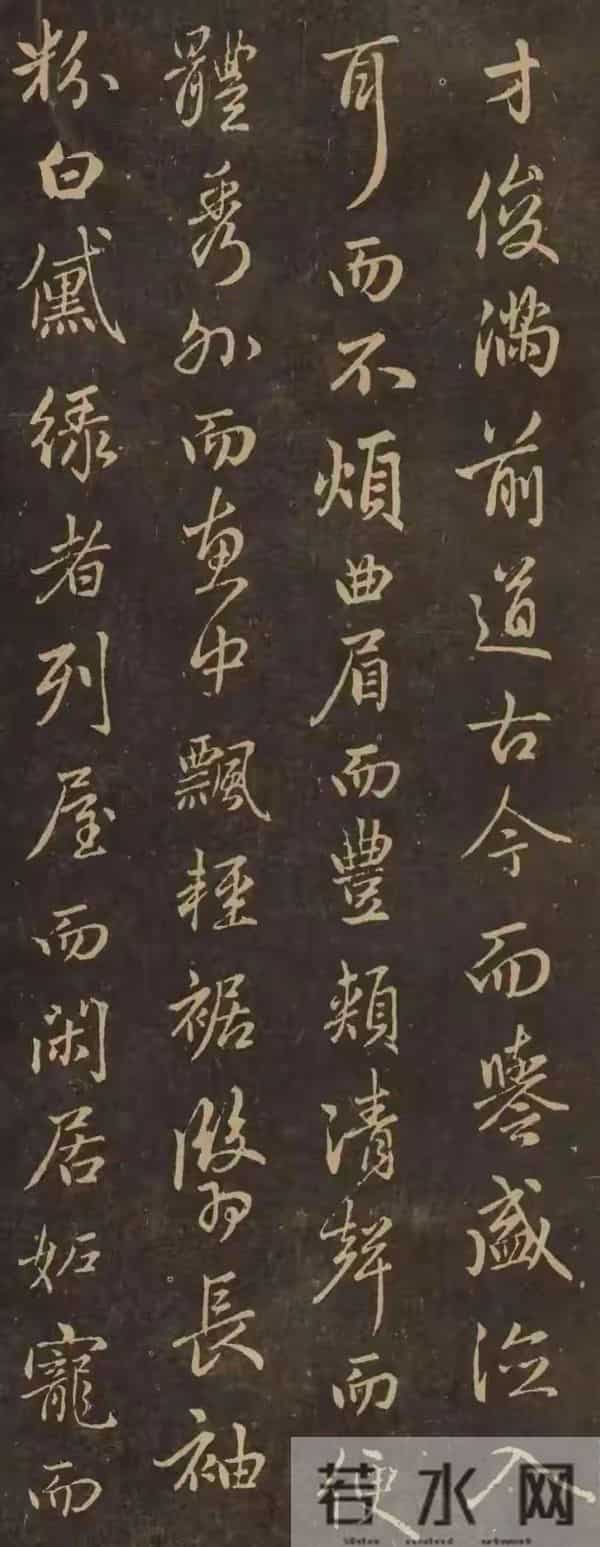 才俊滿前道古今而譽盛德入
耳而不煩曲眉而豐頰清聲而便
體秀外而惠中飄輕裾翳長袖
粉白黛綠者列屋而閑居妬寵而
若水网